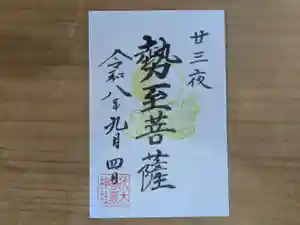 廿三夜
勢至菩薩
令和八年九月四日